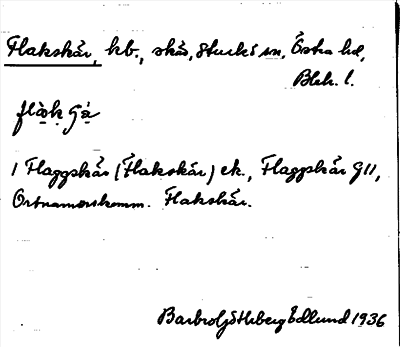 Flakskär, hb., skär, Sturkö sn, Östra hd,
Blek. l.
1 Flaggskär (Flakskär) ek., Flaggskär G11,
Ortnamnskomm. Flakskär.
Barbro Ljöthberg Edlund 1936